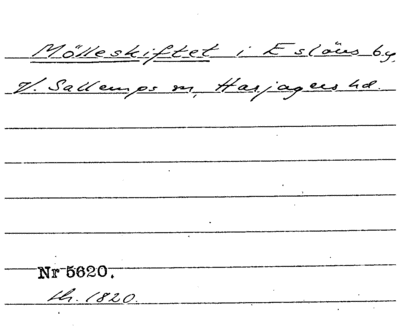 Mölleskiftet i Eslövs by,
V. Sallerups sn, Harjagers hd.
Nr 5620.
th. 1820.